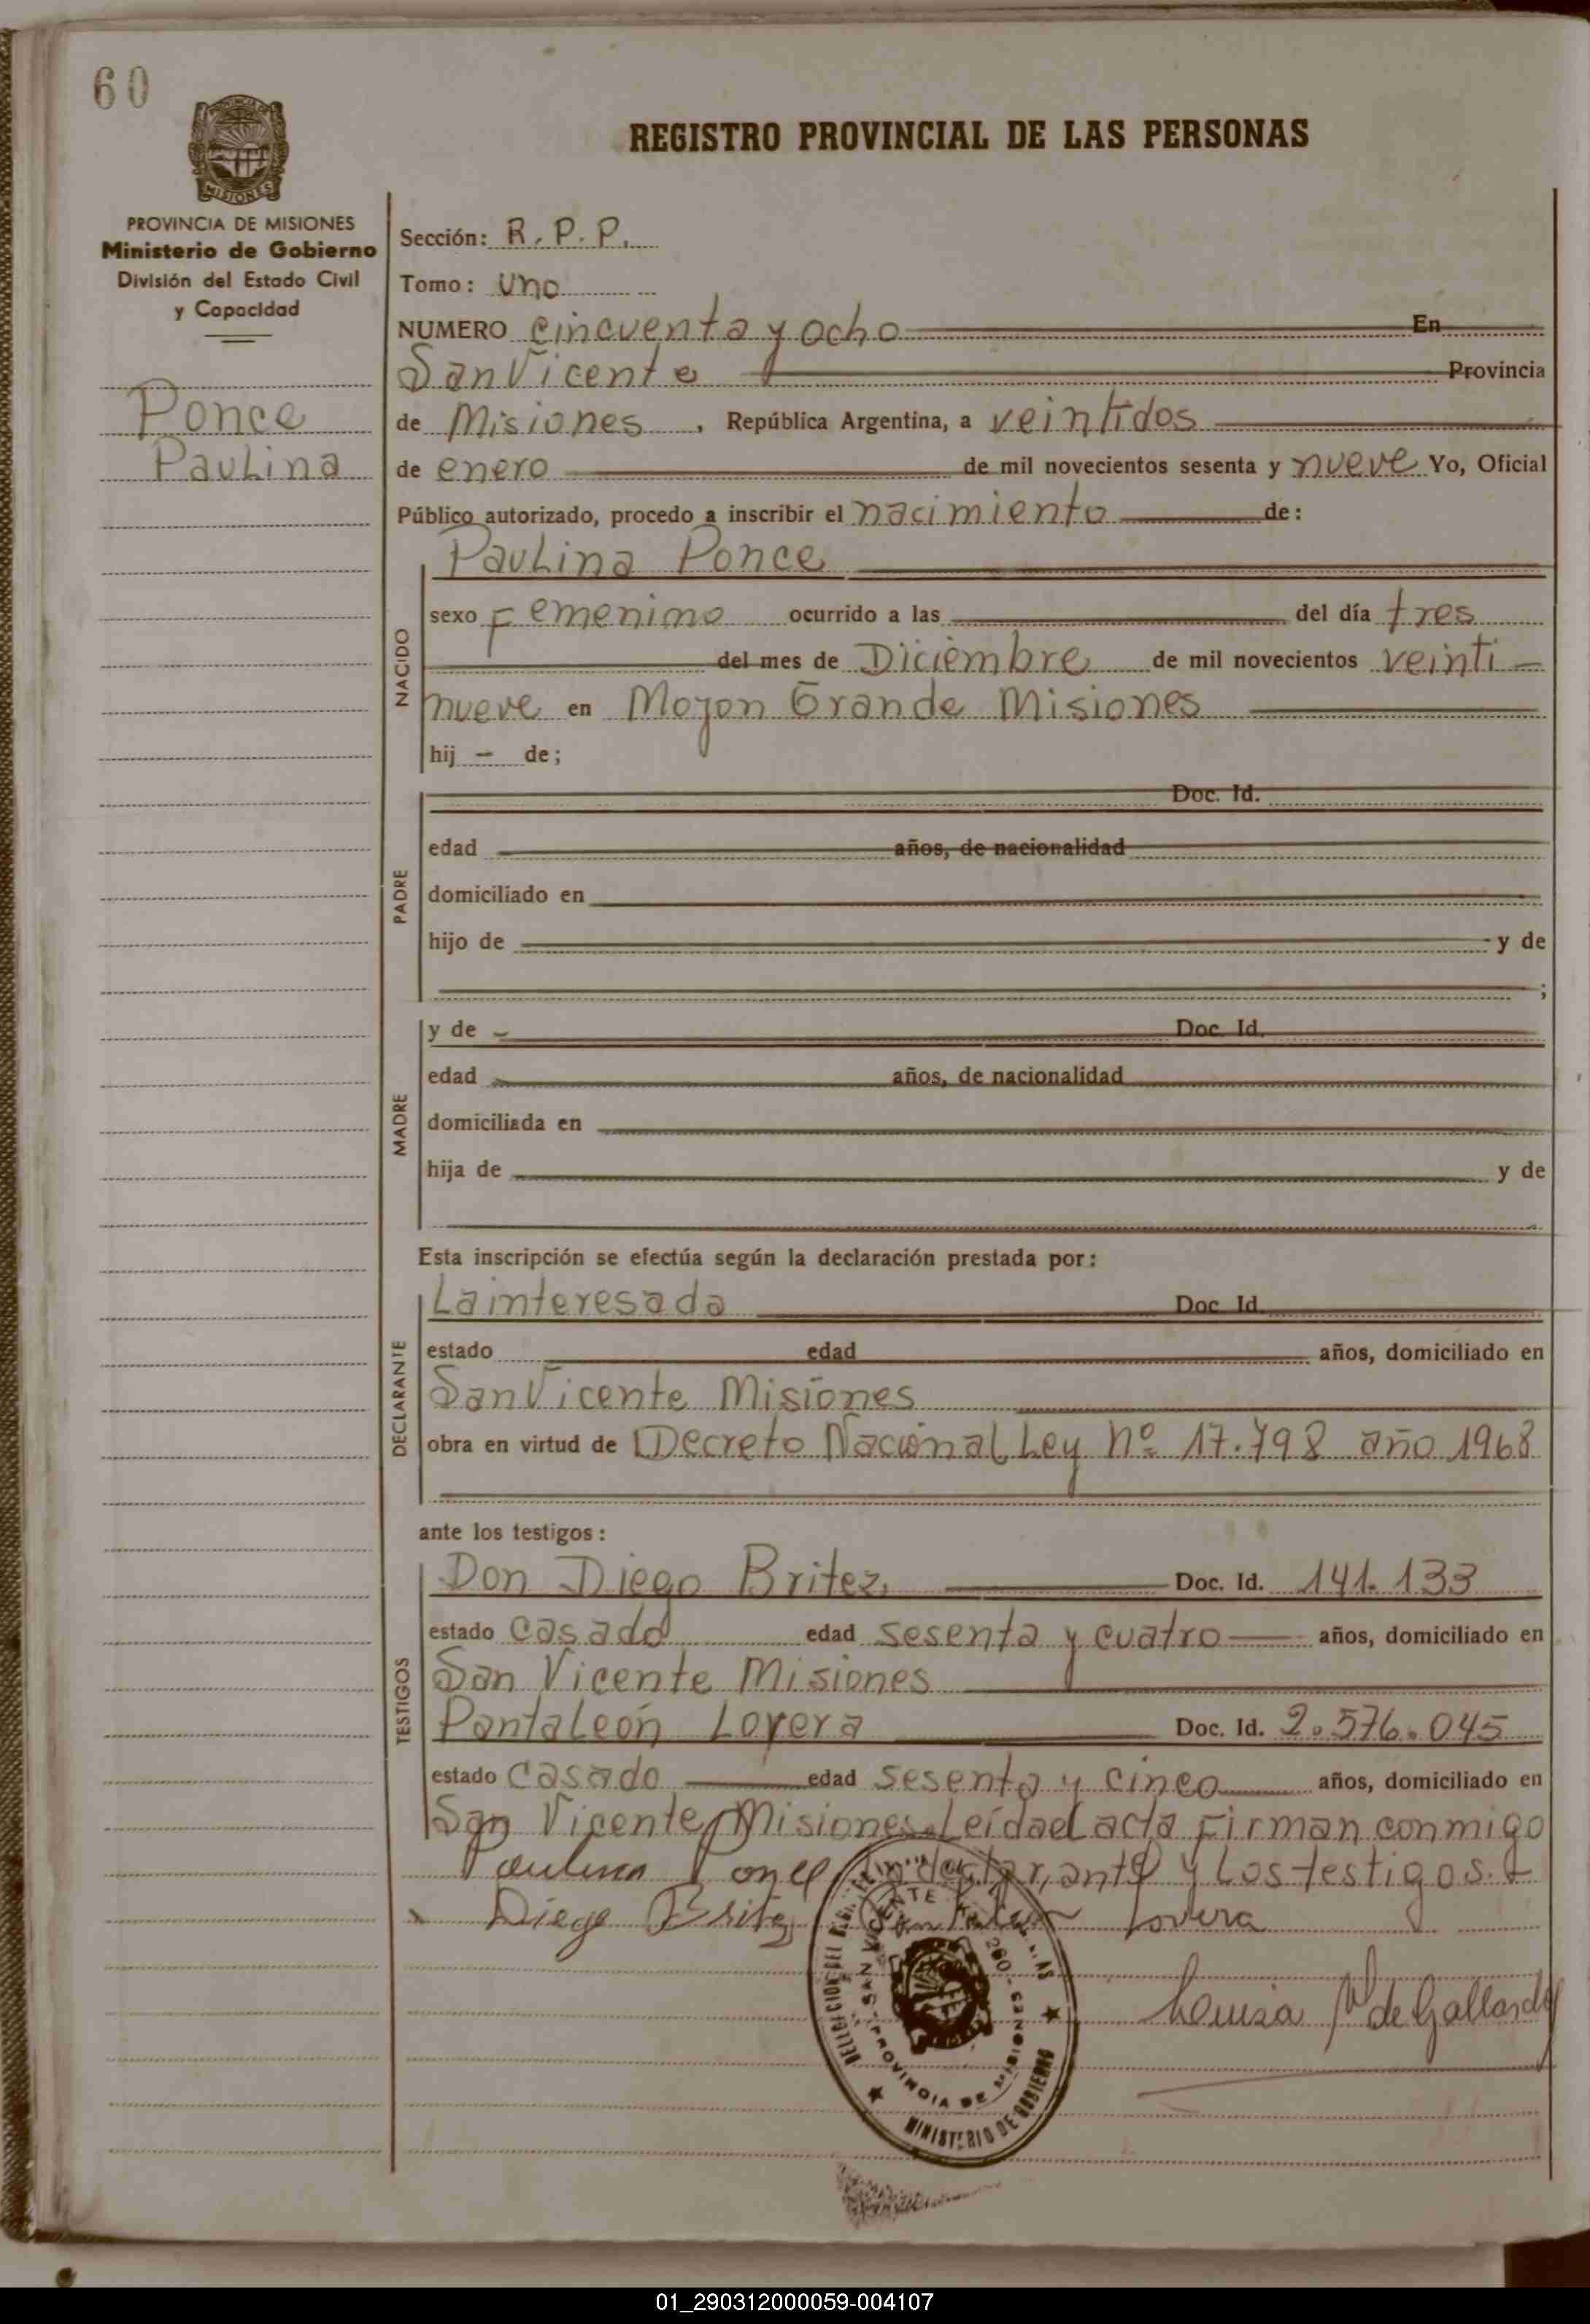 60
MISIONES
PROVINCIA DE MISIONES
Ministerio de Gobierno
División del Estado Civil
y Capacidad
Ponce
Paulina
REGISTRO PROVINCIAL DE LAS PERSONAS
Sección: R. P. P.
Tomo: Uno
NUMERO cincuenta y ocho En
San Vicente Provincia
de Misiones, República Argentina, a veintidos
de enero de mil novecientos sesenta y nueve Yo, Oficial
Público autorizado, procedo a inscribir el nacimiento de:
NACIDO
Paulina Ponce
sexo Femenimo ocurrido a las del día tres
del mes de Diciembre de mil novecientos veinti-
nueve en Mojon Grande Misiones
hij - de;
PADRE
Doc. Id.
edad años, de nacionalidad
domiciliado en
hijo de y de
;
MADRE
y de Doc. Id.
edad años, de nacionalidad
domiciliada en
hija de y de
Esta inscripción se efectúa según la declaración prestada por:
DECLARANTE
La interesada Doc. Id.
estado edad años, domiciliado en
San Vicente Misiones
obra en virtud de Decreto Nacional Ley Nº 17.798 año 1968
ante los testigos:
TESTIGOS
Don Diego Britez Doc. Id. 141.133
estado Casado edad sesenta y cuatro años, domiciliado en
San Vicente Misiones
Pantaleón Lovera Doc. Id. 2.576.045
estado Casado edad sesenta y cinco años, domiciliado en
San Vicente Misiones. Leída el acta Firman conmigo
Paulina Ponce la declarante y los testigos.
Diego Britez Lovera
SAN VICENTE
PROVINCIA DE MISIONES
MINISTERIO DE GOBIERNO
de Gallardo
01_290312000059-004107